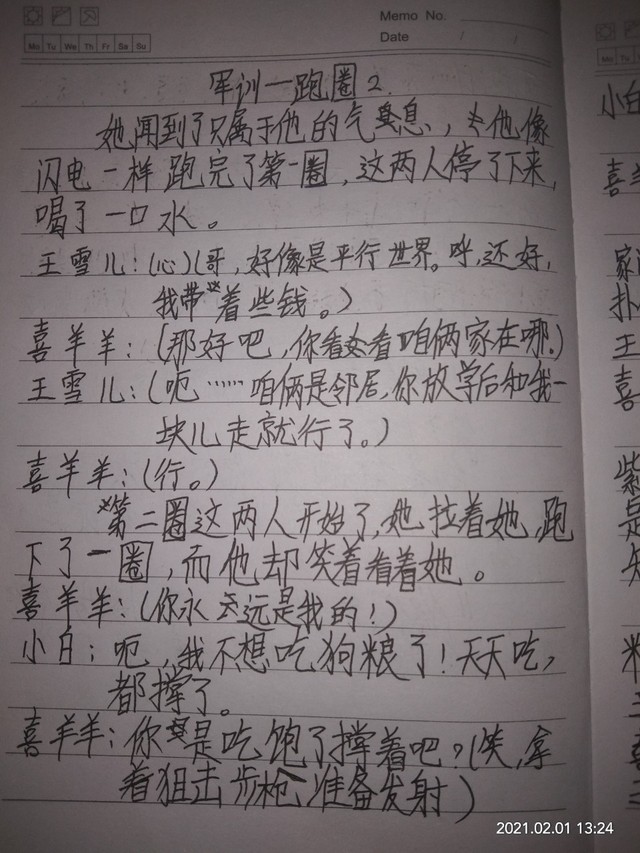 Memo No.
Date / /
Mo Tu We Th Fr Sa Su
军训一跑圈2.
她闻到了只属于他的气息,他像
闪电一样跑完了第一圈,这两人停了下来,
喝了一口水。
王雪儿:(心)(哥,好像是平行世界。呼,还好,
我带着些钱。)
喜羊羊:(那好吧,你看看咱俩家在哪。)
王雪儿:(呃……咱俩是邻居,你放学后和我一
块儿走就行了。)
喜羊羊:(行。)
第二圈这两人开始了,她拉着她,跑
下了一圈,而他却笑着看着她。
喜羊羊:(你永远是我的!)
小白:呃,我不想吃狗粮了!天天吃,
都撑了。
喜羊羊:你是吃饱了撑着吧?(笑,拿
着狙击步枪,准备发射)
小白
喜
家
扑
王
喜
紫
是
2021.02.01 13:24